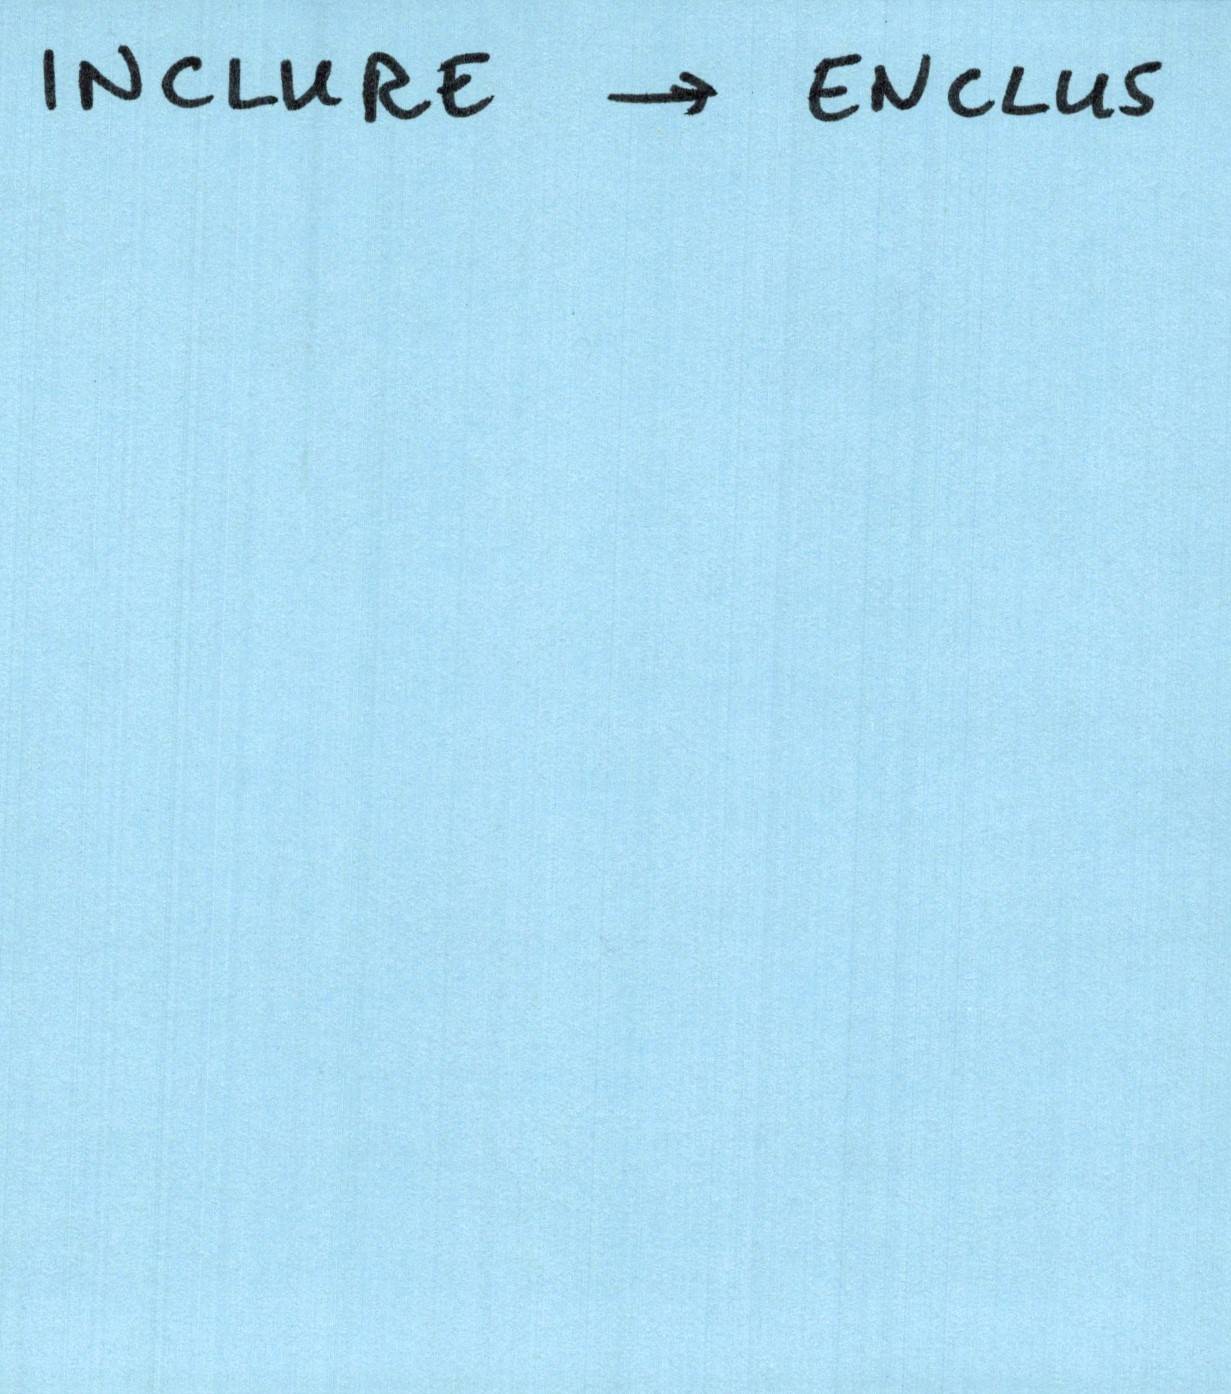 INCLURE → ENCLUS